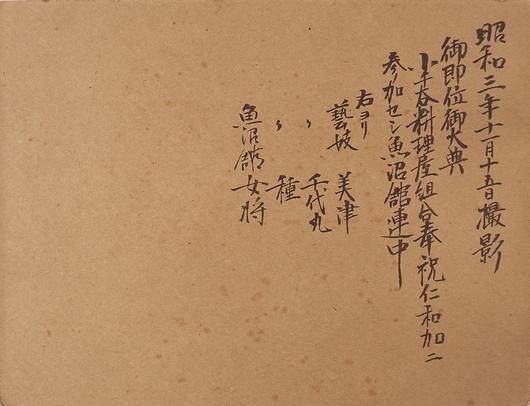 昭和三年十一月十五日撮影
御即位御大典
小千谷料理屋組合奉祝仁和加ニ
参加セシ魚沼館連中
右ヨリ
藝妓 美津
〃 千代丸
〃 種
魚沼館女将